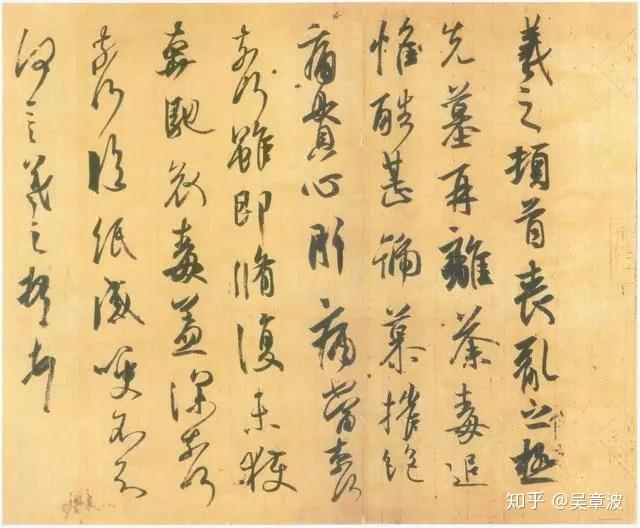 羲之頓首喪亂之極
先墓再離荼毒追
惟酷甚號慕摧絕
痛貫心肝痛當奈何
奈何雖即脩復未獲
奔馳哀毒益深奈何
奈何臨紙感哽不知
何言羲之頓首頓首
知乎 @吴章波